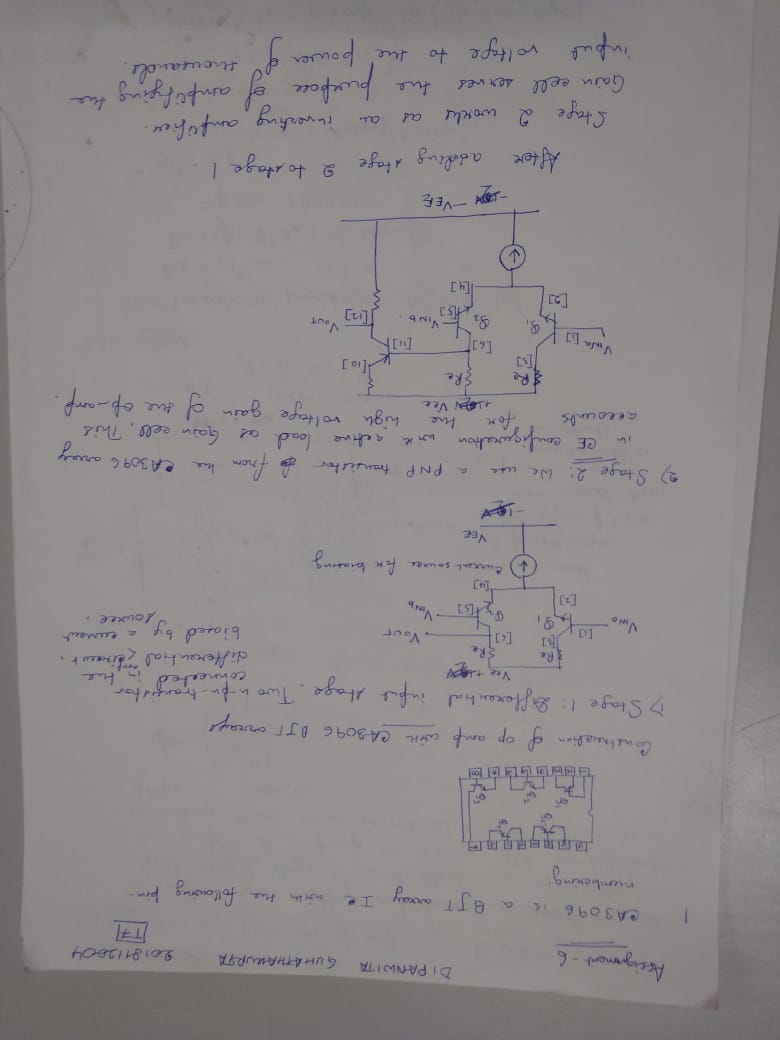 Assignment-6
DIPANWITA GUHATHAKURTA
2018112004
T7
1 CA3096 is a BJT array IC with the following pin-
numbering:
Q1 Q2 Q3
Construction of op amp with CA3096 BJT arrays
1) Stage 1: Differential input stage. Two npn-transistor
connected in the
differential amp circuit,
biased by a current
source.
Vcc
Rc Rc
VINa [1] [3] Q1 [2]
VOUT [6] Q2 [5] VINb
[4]
Current source for biasing
VEE
2) Stage 2: We use a PNP transistor from the CA3096 array
in CE configuration with active load as Gain cell. This
accounts for the high voltage gain of the op-amp.
Vcc
Rc Rc
VINa [1] [3] Q1 [2]
[6] Q2 [5] VINb [4]
[10] [11] [12] VOUT
-VEE
After adding stage 2 to stage 1.
Stage 2 works as an inverting amplifier.
Gain cell serves the purpose of amplifying the
input voltage to the power of thousands.